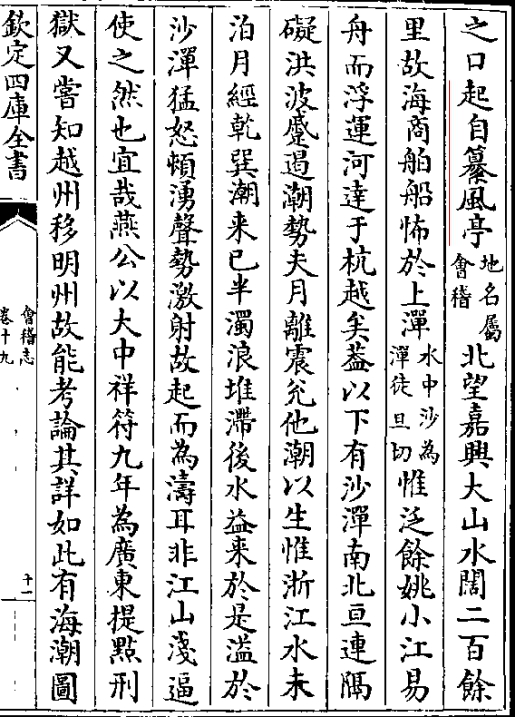 之口起自纂風亭地名屬會稽北望嘉興大山水闊二百餘
里故海商舶船怖於上潬水中沙為潬徒旦切惟泛餘姚小江易
舟而浮運河達于杭越矣葢以下有沙潬南北亘連隔
礙洪波蹙遏潮勢夫月離震兊他潮以生惟浙江水未
泊月經乾巽潮来已半濁浪堆滯後水益来於是溢於
沙潬猛怒頓湧聲勢激射故起而為濤耳非江山淺逼
使之然也宜哉燕公以大中祥符九年為廣東提點刑
獄又嘗知越州移明州故能考論其詳如此有海潮圖
欽定四庫全書
會稽志
卷十九
十一